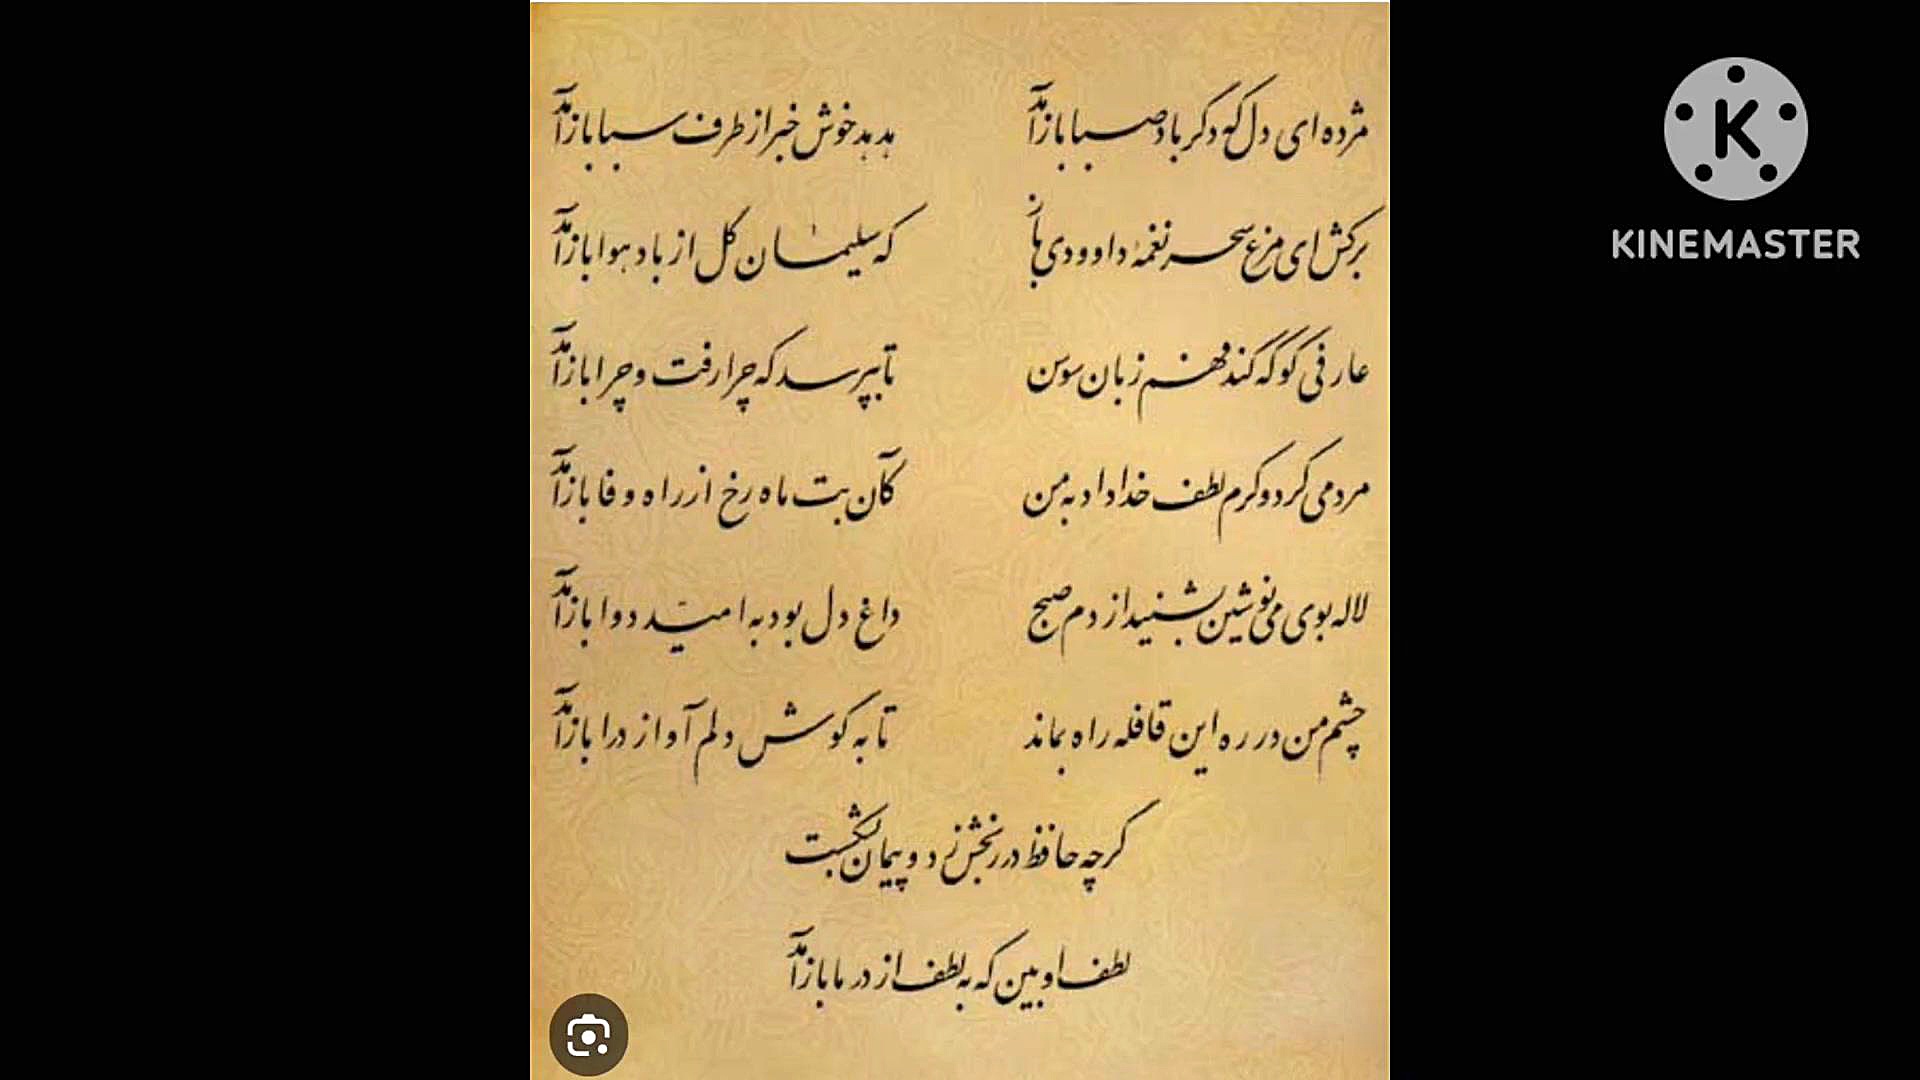 مژده ای دل که دگر باد صبا بازآمد هدهد خوش خبر از طرف سبا بازآمد
برکش ای مرغ سحر نغمهٔ داوودی باز که سلیمان گل از باد هوا بازآمد
عارفی کو که کند فهم زبان سوسن تا بپرسد که چرا رفت و چرا بازآمد
مردمی کرد و کرم لطف خداداد به من کان بت ماه رخ از راه وفا بازآمد
لاله بوی می نوشین بشنید از دم صبح داغ دل بود به امید دوا بازآمد
چشم من در ره این قافله راه بماند تا به گوش دلم آواز درا بازآمد
گرچه حافظ در رنجش زد و پیمان بشکست
لطف او بین که به لطف از در ما بازآمد
KINEMASTER